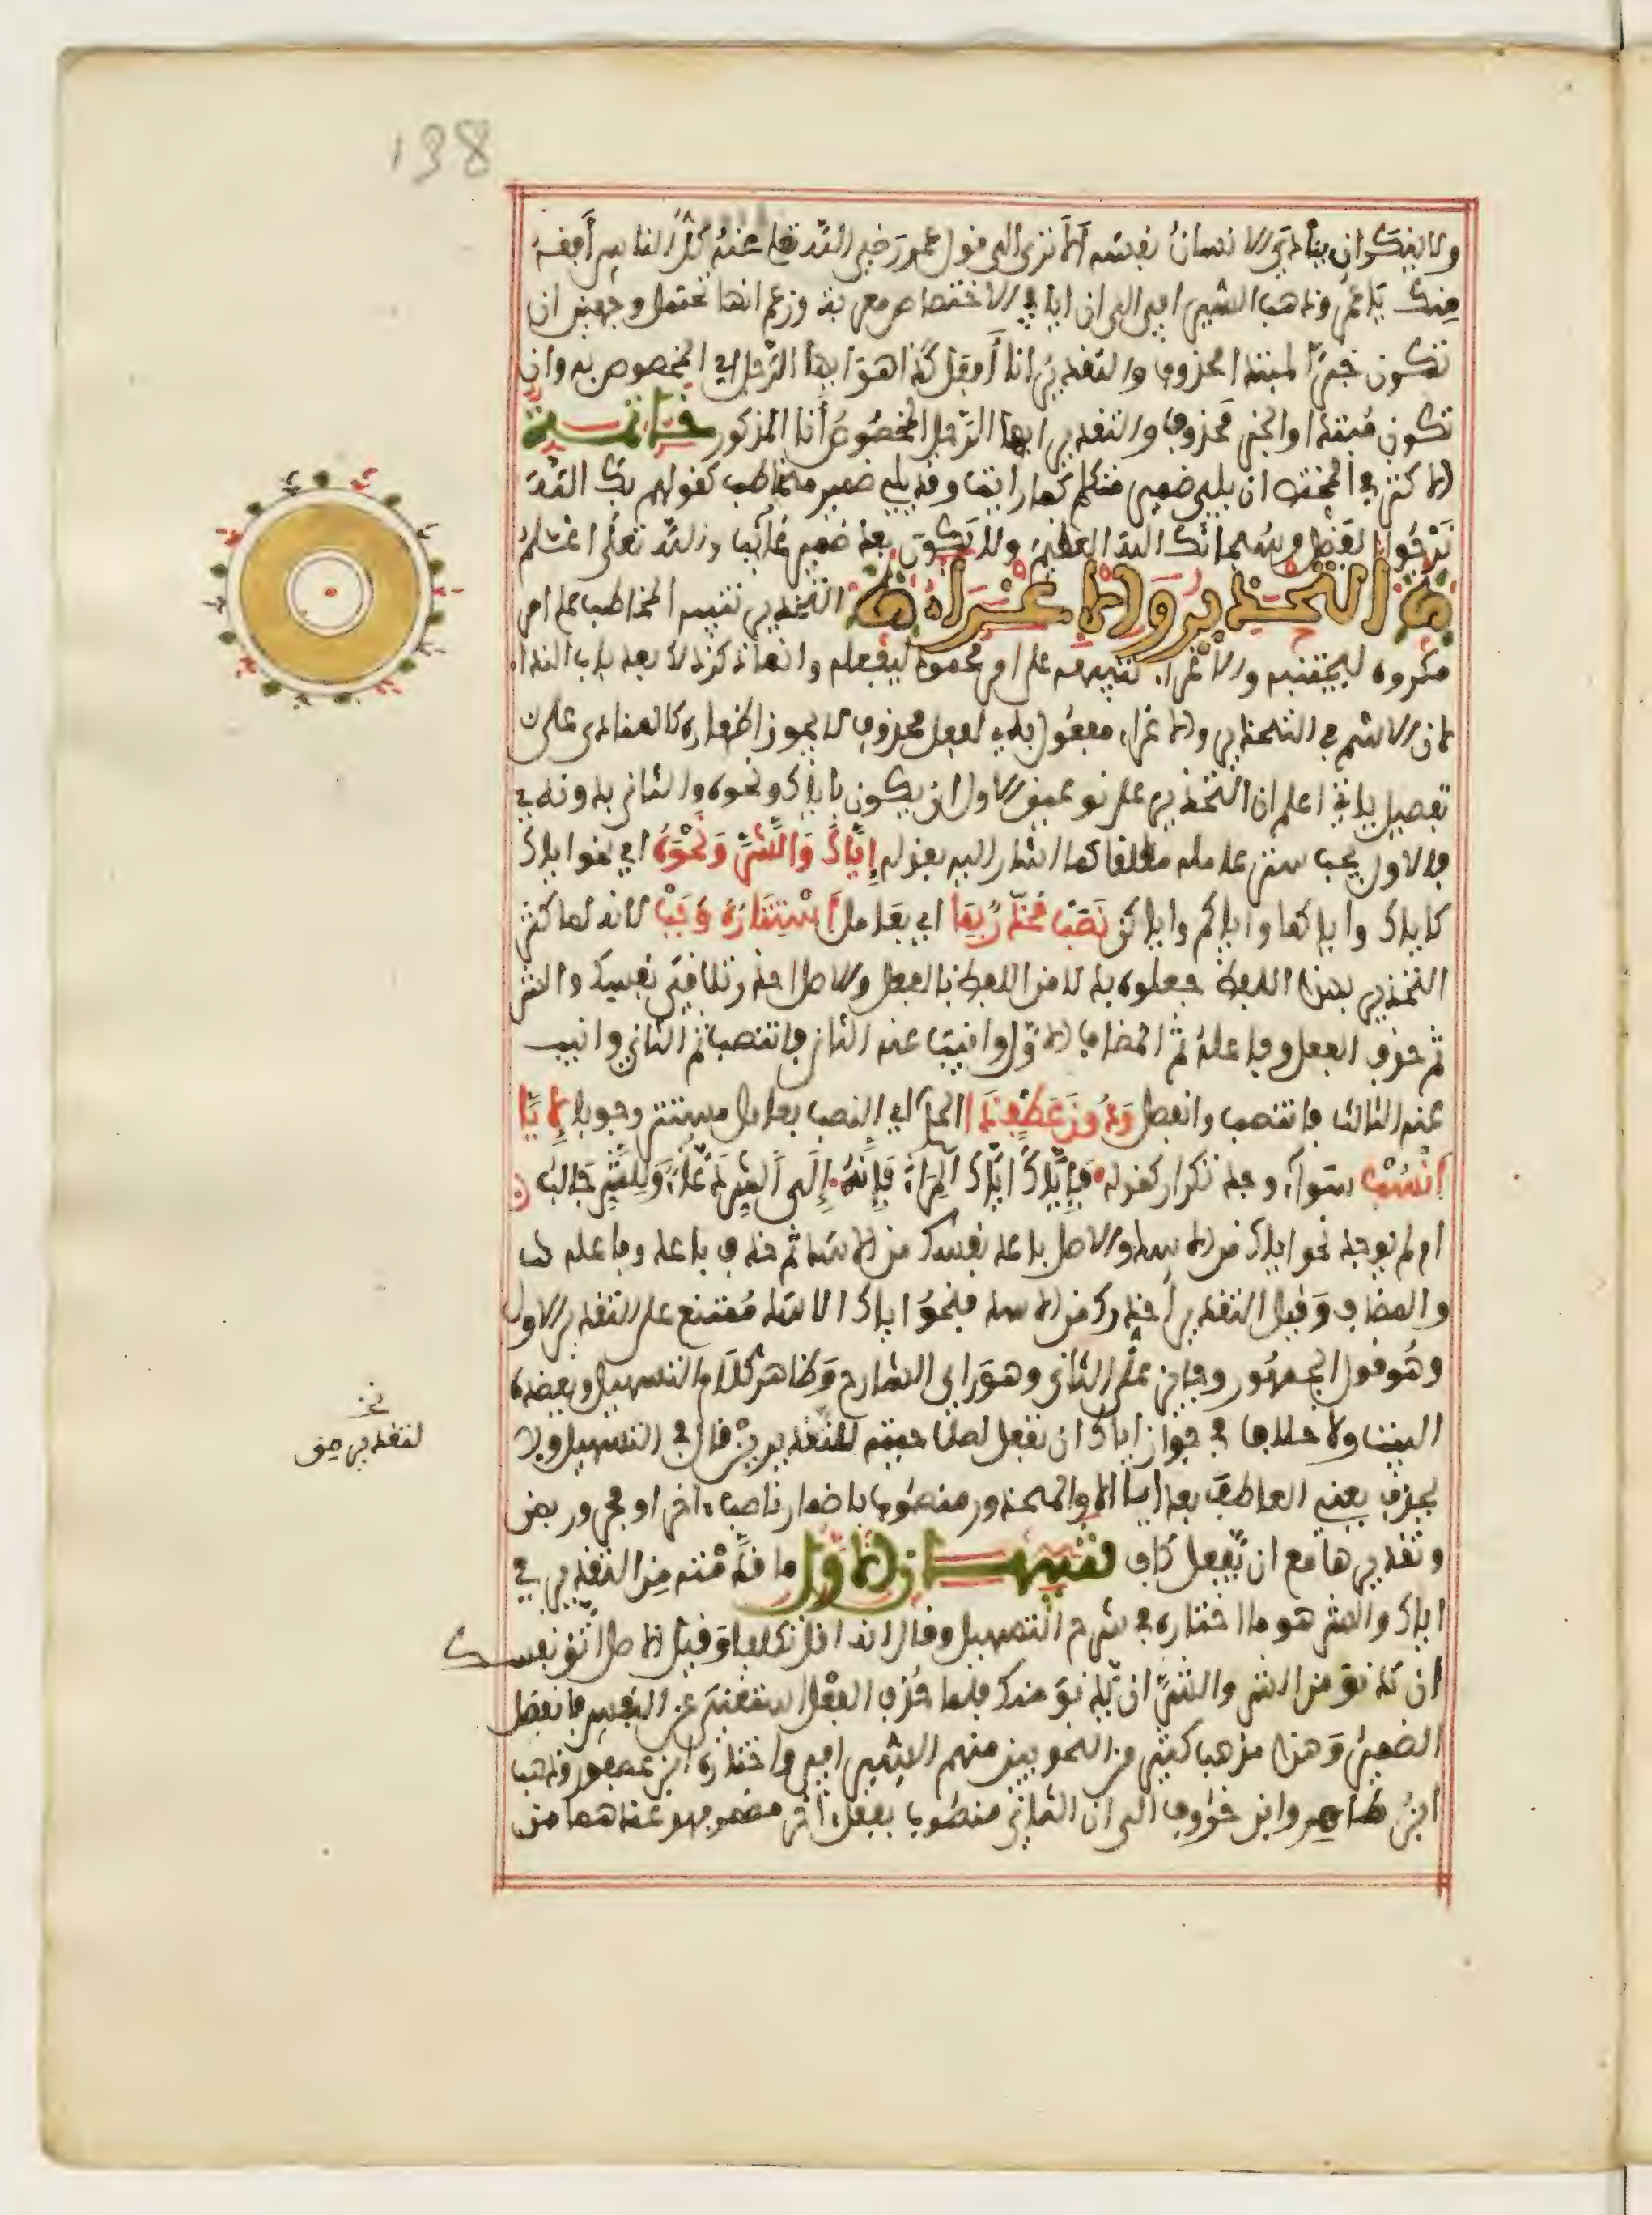 138
ولا ينكر ان ينادي الانسان نفسه الا ترى الى قول عمر رضي الله تعلى عنه كل الناس أفقه
منك يا عمر وذهب السيرافي الى ان ايا في الاختصاص معربة وزعم انها تحتمل وجهين ان
تكون خبرا لمبتدا محذوف والتقدير انا أفعل كذا هو ايها الرجل اي المخصوص به وان
تكون مبتدا والخبر محذوف والتقدير ايها الرجل المخصوص أنا المذكور خاتمــــة
الاكثر في المختص ان يلي ضمير متكلم كما رايت وقد يلي ضمير مخاطب كقولهم بك الله
نرجوا الفضل وسبحانك الله العظيم ولا يكون بعد ضمير غائب والله تعلى اعلم
التحذير والاغراء التحذير تنبيه المخاطب على امر
مكروه ليجتنبه والاغراء تنبيهه على امر محمود ليفعله وانما ذكر ذلك بعد باب النداء
لان الاسم في التحذير والاغراء مفعول به لفعل محذوف لا يجوز اظهاره كالمنادى على
تفصيل ياتي اعلم ان التحذير على نوعين الاول ان يكون باياك ونحوه والثاني بدونه
فالاول يجب ستر عامله مطلقا كما اشار اليه بقوله إياك والشر ونحوه اي نحو اياك
كاياك واياكما واياكم واياكن نصب محذر بما اي بعامل استتاره وجب لانه لما كثر
التحذير بهذا اللفظ جعلوه بدلا من اللفظ بالفعل والاصل احذر تلاقي نفسك والشر
ثم حذف الفعل وفاعله ثم المضاف الاول وانيب عنه الثاني فانتصب ثم الثاني وانيب
عنه الثالث فانتصب وانفصل ودون عطف ذا الحكم اي النصب بعامل مستتر وجوبا لإيا
انسب سواء وجد تكرار كقوله فإياك اياك المراء فإنه إلى الشر دعاء وللشر جالب
ام لم يوجد نحو اياك من الاسد والاصل باعد نفسك من الاسد ثم حذف باعد وفاعله
والمضاف وقيل التقدير أحذرك من الاسد فنحو اياك الاسد ممتنع على التقدير الاول
وهو قول الجمهور وجائز على الثاني وهو راي الشارح وظاهر كلام التسهيل ويعضده
البيت ولا خلاف في جواز اياك ان تفعل لصلاحيته لتقدير من قال في التسهيل ولا
يحذف يعني العاطف بعد ايا الا والمحذور منصوب باضمار ناصب اخر او مجرور بمن
وتقديرها مع ان تفعل كاف تنبيهـــان الاول ما قدمته من التقدير في
اياك والشر هو ما اختاره في شرح التسهيل وقال انه اقل تكلفا وقيل الاصل اتق نفسك
ان تدنو من الشر والشر ان يدنو منك فلما حذف الفعل استغني عن النفس فانفصل
الضمير وهذا مذهب كثير من النحويين منهم السيرافي واختاره ابن عصفور وذهب
ابن طاهر وابن خروف الى ان الثاني منصوب بفعل اخر مضمر فهو عندهما من
لتقدير من